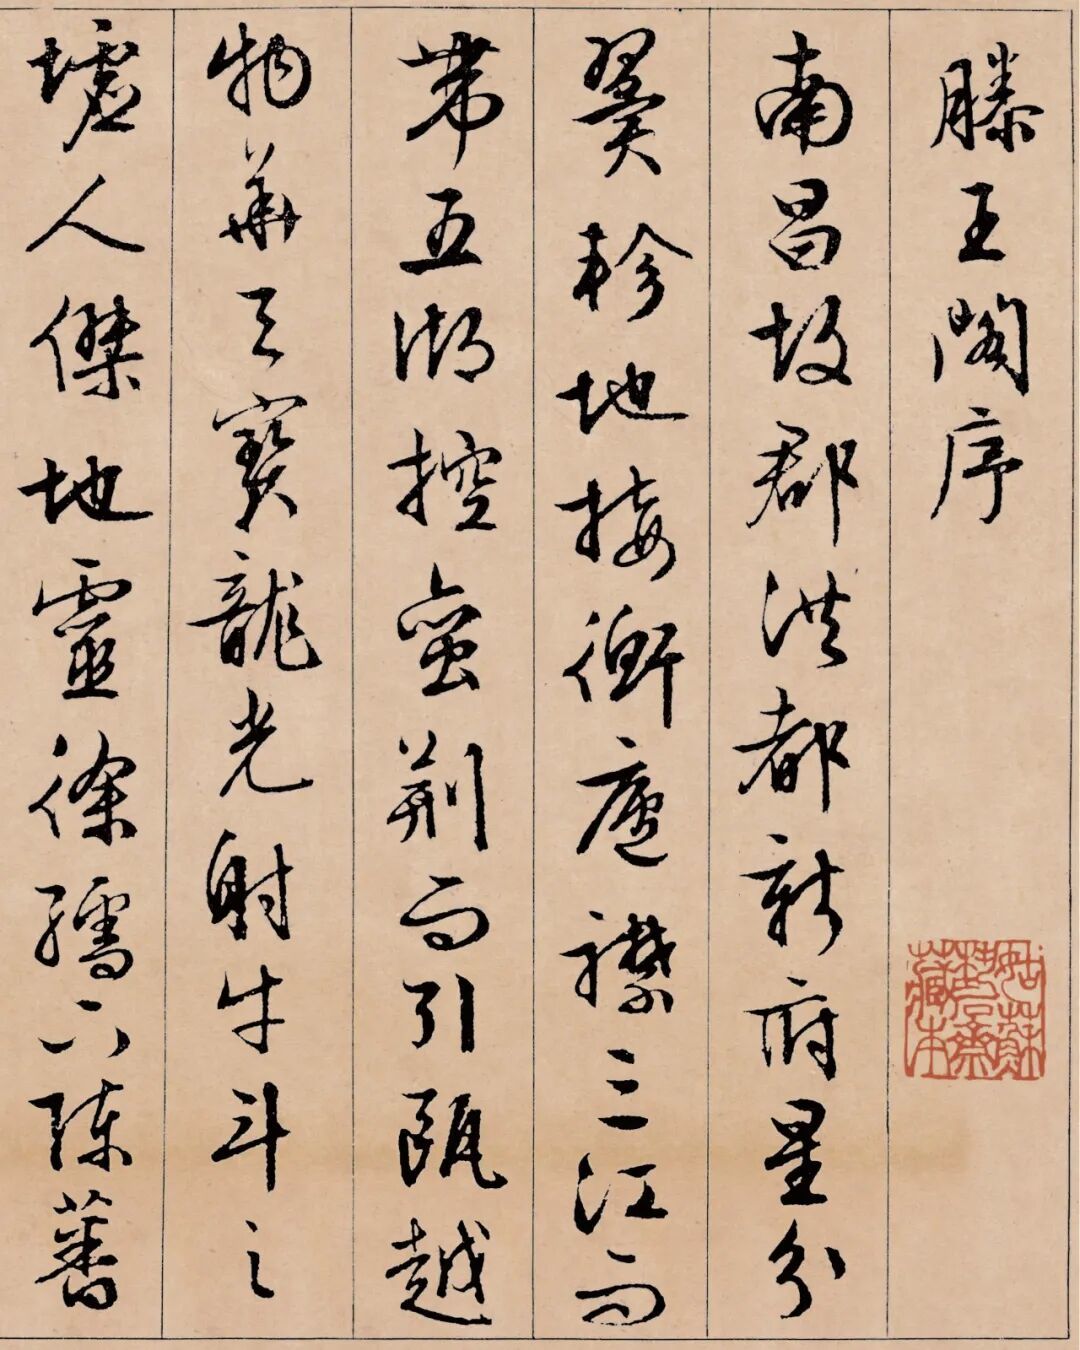 滕王閣序
南昌故郡洪都新府星分
翼軫地接衡廬襟三江而
帶五湖控蠻荊而引甌越
物華天寶龍光射牛斗之
墟人傑地靈徐孺下陳蕃
姑蘇
齋
藏本